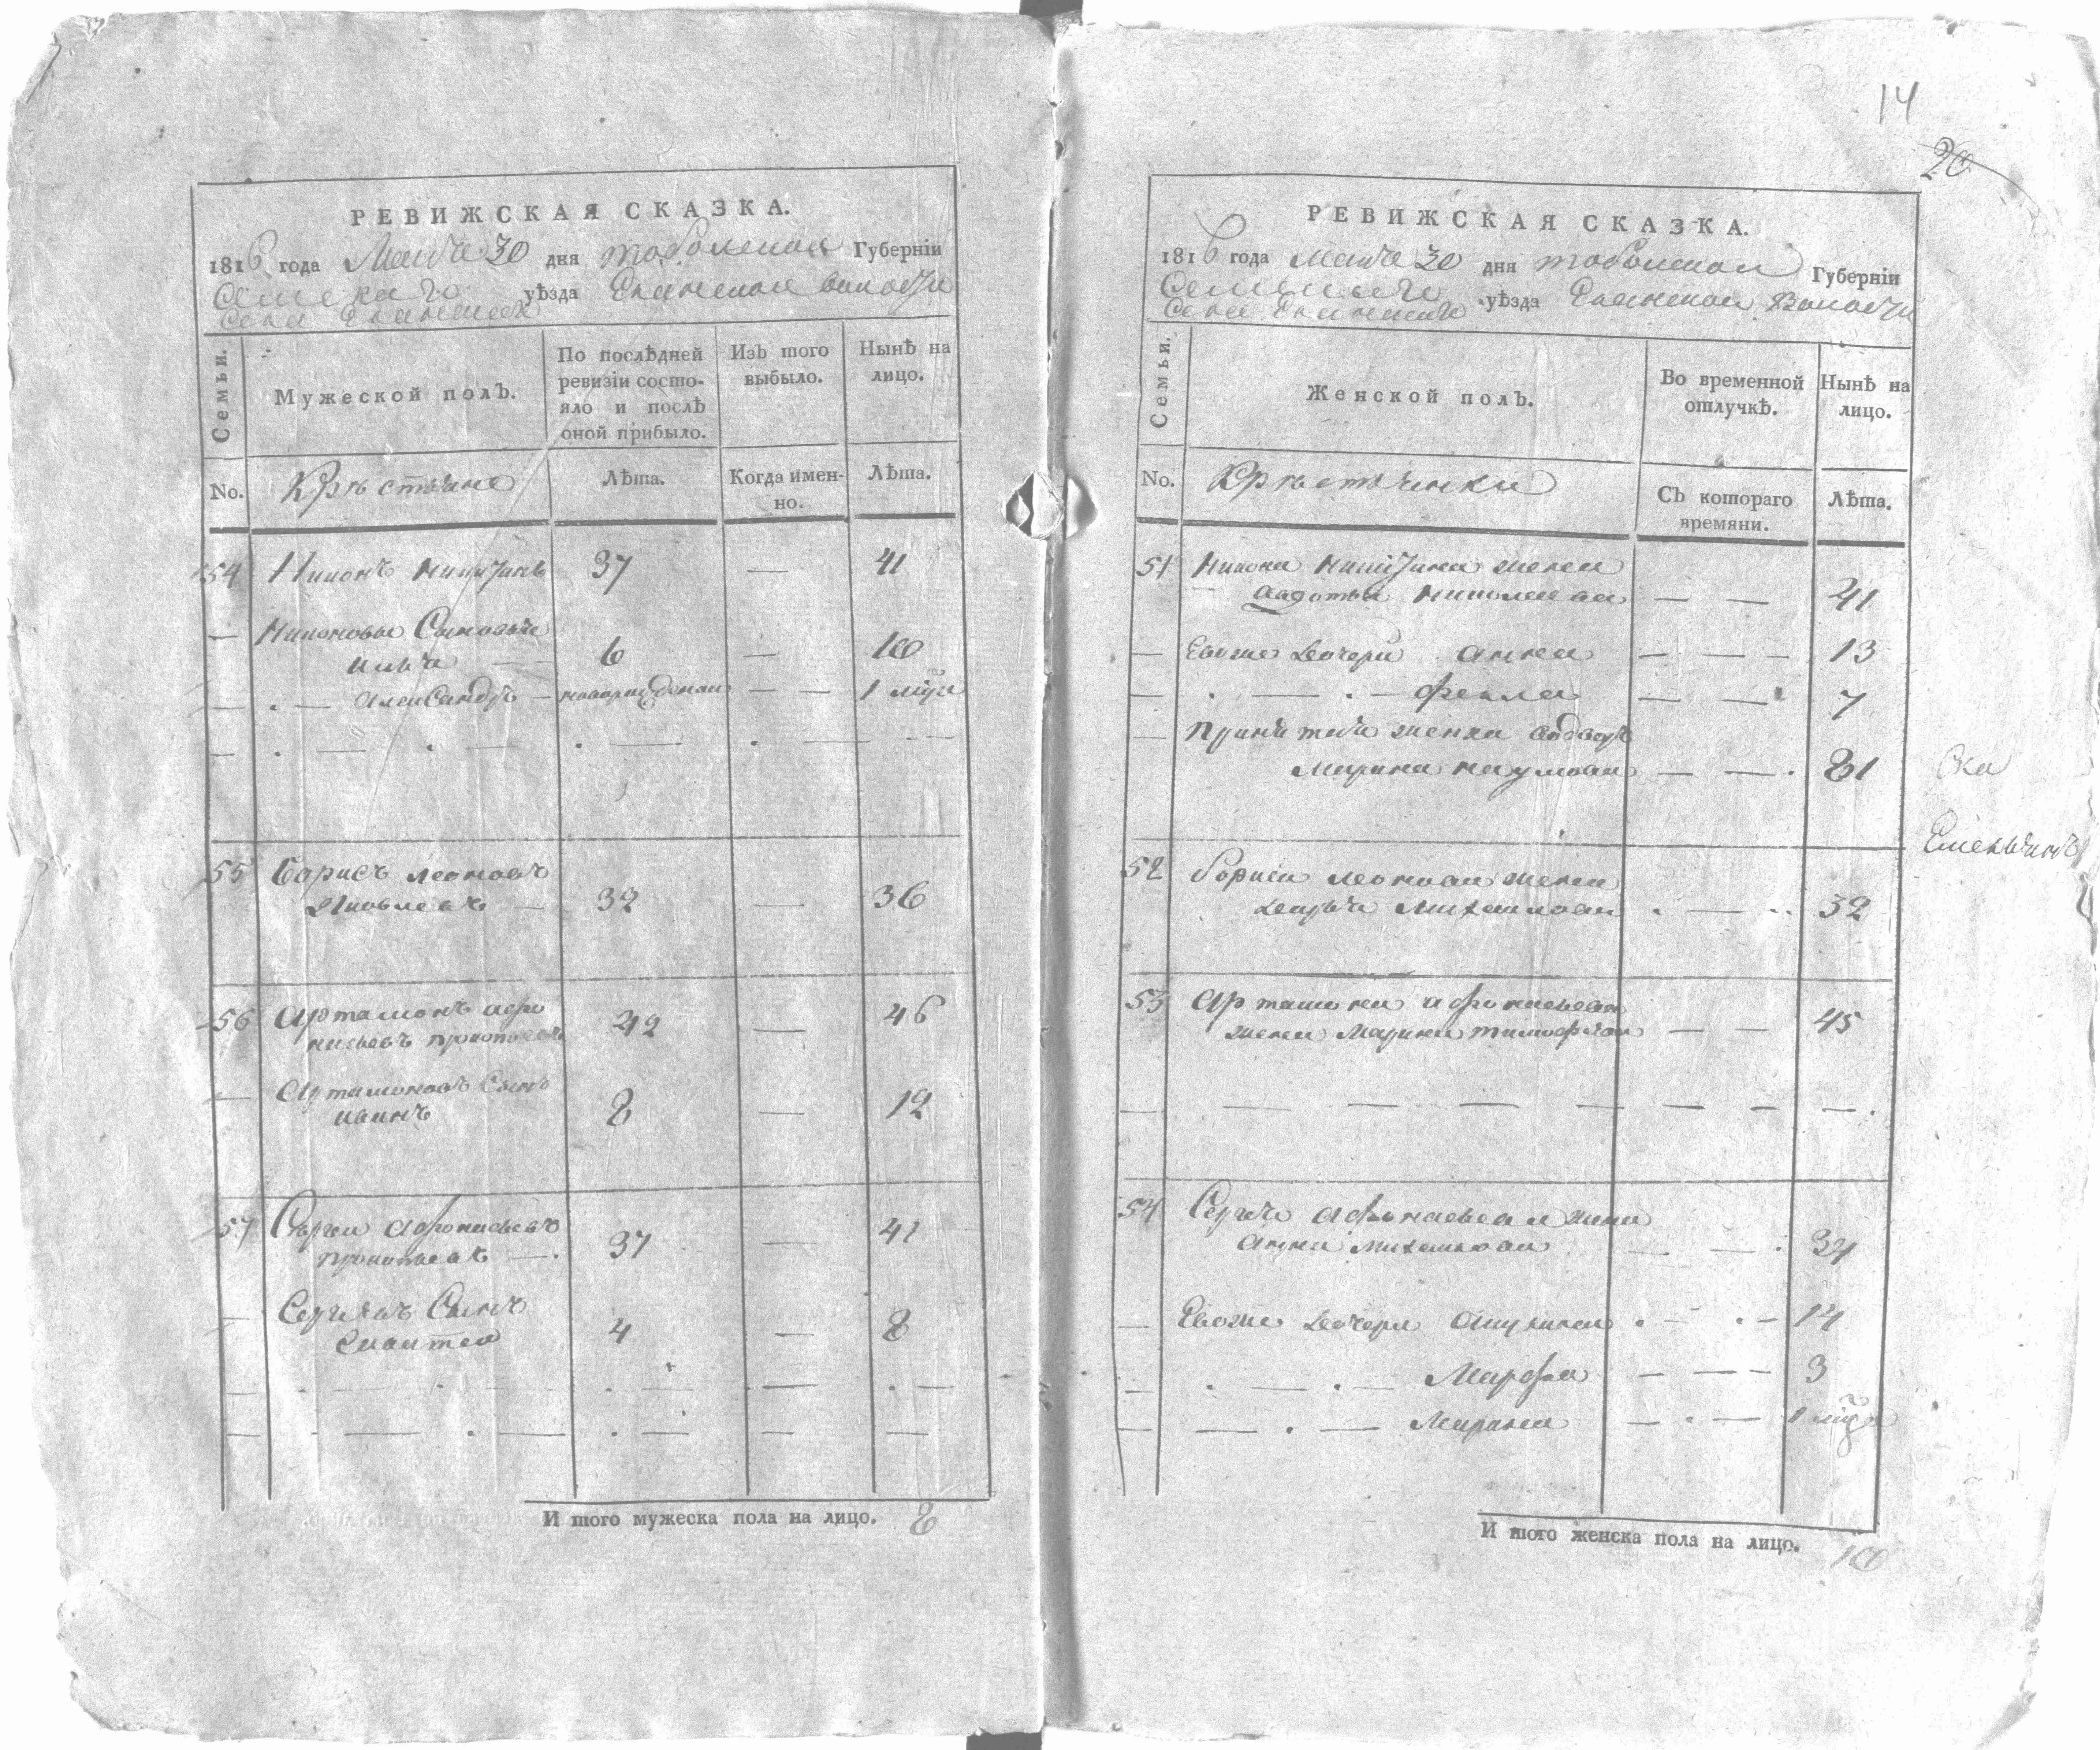 14
20
РЕВИЖСКАЯ СКАЗКА.
1816 года Маия 30 дня тобольской Губерніи
уѣзда Еланской волости
Села Еланскаго
Семьи.
Мужеской полЪ.
По послѣдней ревизіи состояло и послѣ оной прибыло.
ИзЪ того выбыло.
Нынѣ на лицо.
No.
Крѣстьяне
Лѣта.
Когда именно.
Лѣта.
54 Никонъ Никитинъ 37 — 41
— Никоновы Сыновья
Илья — 6 — 10
— Александръ — новорожденой — — 1 
55 Борисъ леоновъ
Яковлевъ — 32 — 36
56 Артамонъ афо
насьевъ 42 — 46
— Артамоновъ Сынъ
иванъ 8 — 12
57 Сергеи Афонасьевъ
прокопьевъ — 37 — 41
— Сергеевъ Сынъ
4 — 8
И того мужеска пола на лицо. 8
РЕВИЖСКАЯ СКАЗКА.
1816 года Маия 30 дня тобольской Губерніи
уѣзда Еланской Волости
Села Еланскаго
Семьи.
Женской полЪ.
Во временной отлучкѣ.
Нынѣ на лицо.
No.
Крѣстьянки
СЪ котораго времяни.
Лѣта.
51 Никона Никитина жена
Авдотья — — 41
— Евоже дочери анна — — — 13
— фекла — — 7
— жонка вдова
Марина наумова — — 81
52 Бориса леонова жена
дарья Михаилова — 32
53 Артамона афонасьева
жена Марина тимофѣева — — 45
54 Сергея афонасьева жена
Анна Михаилова — — 34
— Евоже дочери Акулина — — 14
— Марфа — — — 3
— — — — 1
И того женска пола на лицо. 10